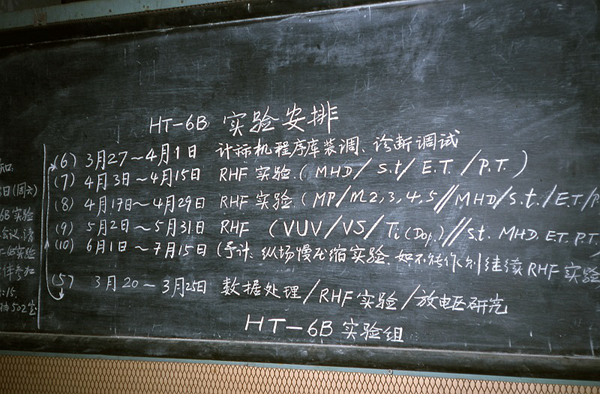 HT-6B 实验安排
(6) 3月27~4月1日 计标机程序库装调、诊断调试
(7) 4月3日~4月15日 RHF 实验.(MHD/s.t/E.T./P.T.)
(8) 4月17日~4月29日 RHF 实验(MP/m2,3,4,5//MHD/s.t./E.T/P
(9) 5月2日~5月31日 RHF (VUV/VS/Ti(Dop.)//s.t. MHD. E.T. P.T.)
(10) 6月1日~7月15日 (予计、纵场慢压缩实验. 如不能作,则继续RHF实验
(5) 3月20~3月25日 数据处理/RHF实验/放电研究
HT-6B实验组
知
日(周六)
6B实验
会议.请
实验
502室